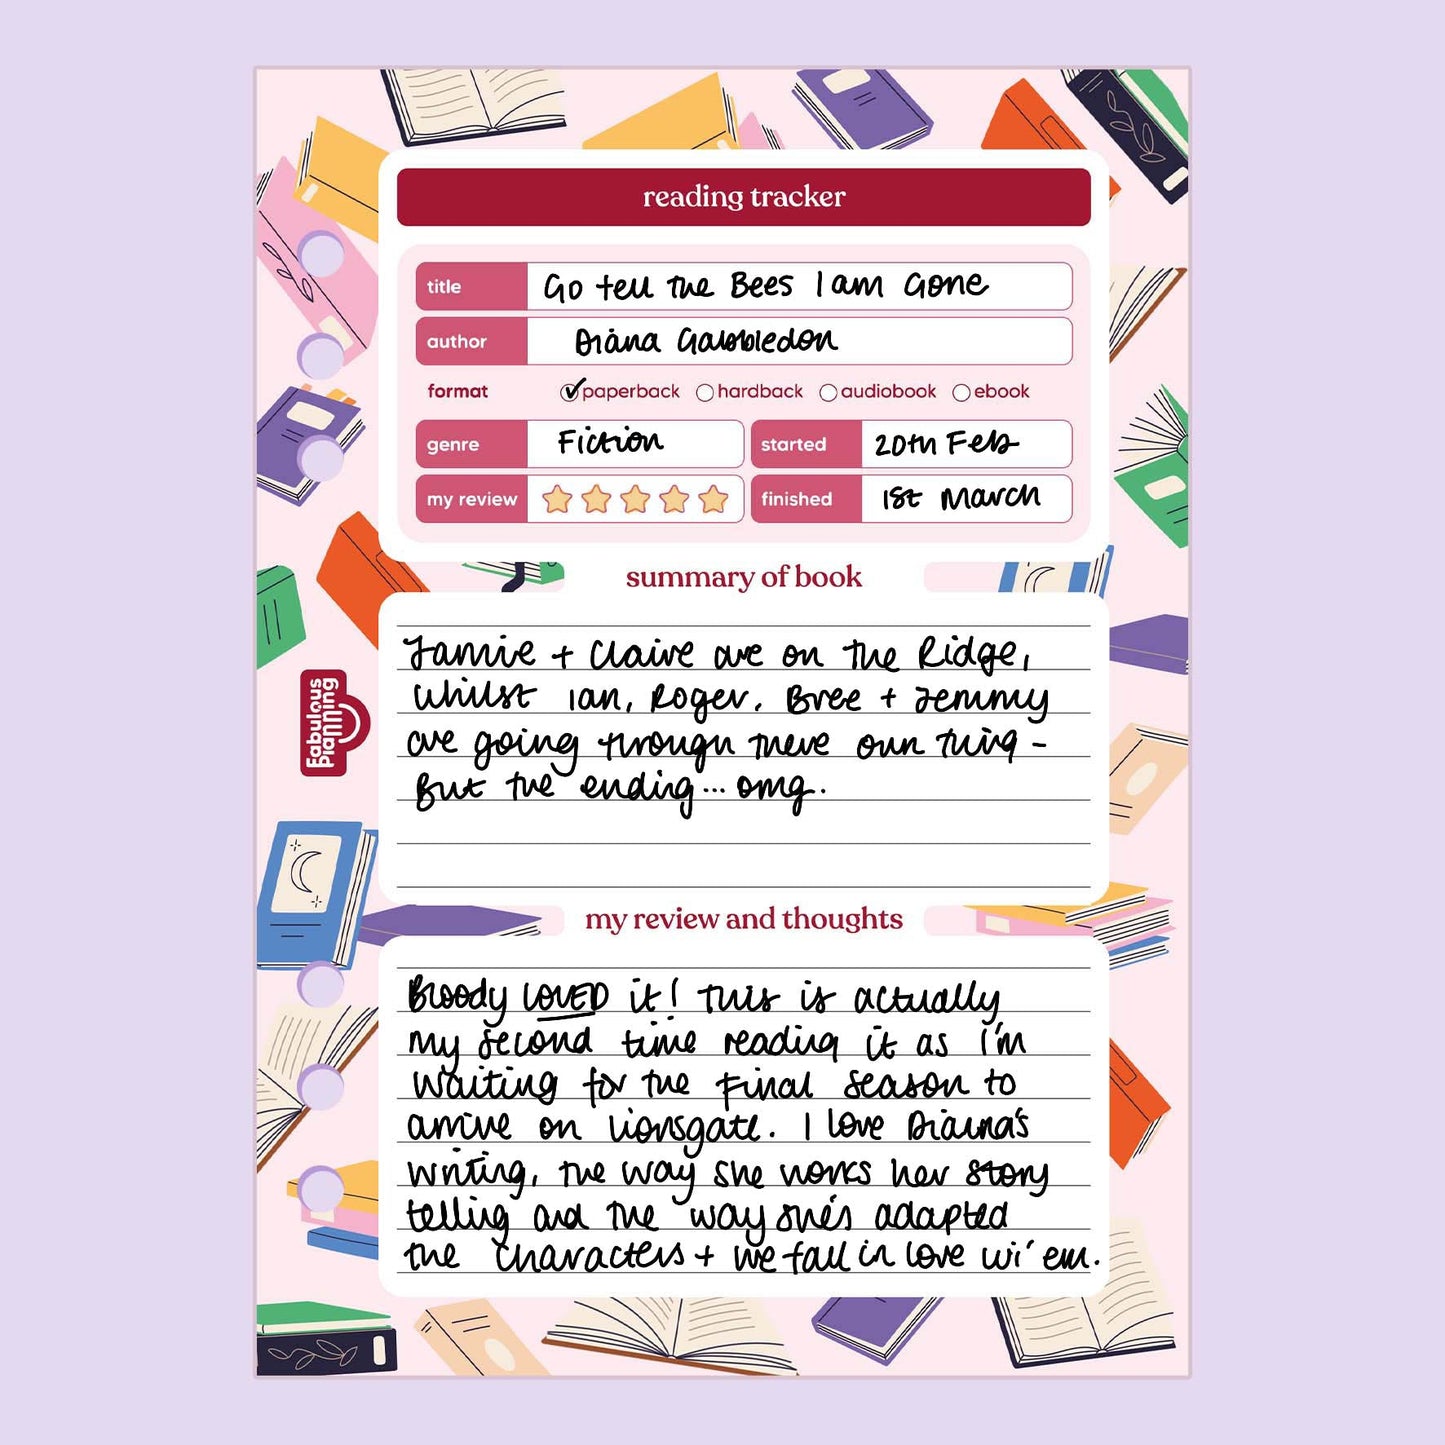 reading tracker
title Go tell the Bees I am Gone
author Diana Gabbledon
format paperback hardback audiobook ebook
genre Fiction started 20th Feb
my review finished 1st March
summary of book
Jamie + Claire are on the Ridge,
whilst Ian, Roger, Bree + Jemmy
are going through there own thing -
But the ending... omg.
Fabulous
Planning
my review and thoughts
Bloody LOVED it! This is actually
my second time reading it as I'm
waiting for the final season to
arrive on Lionsgate. I love Diana's
writing, the way she works her story
telling and the way she's adapted
the characters + we fall in love wi' em.